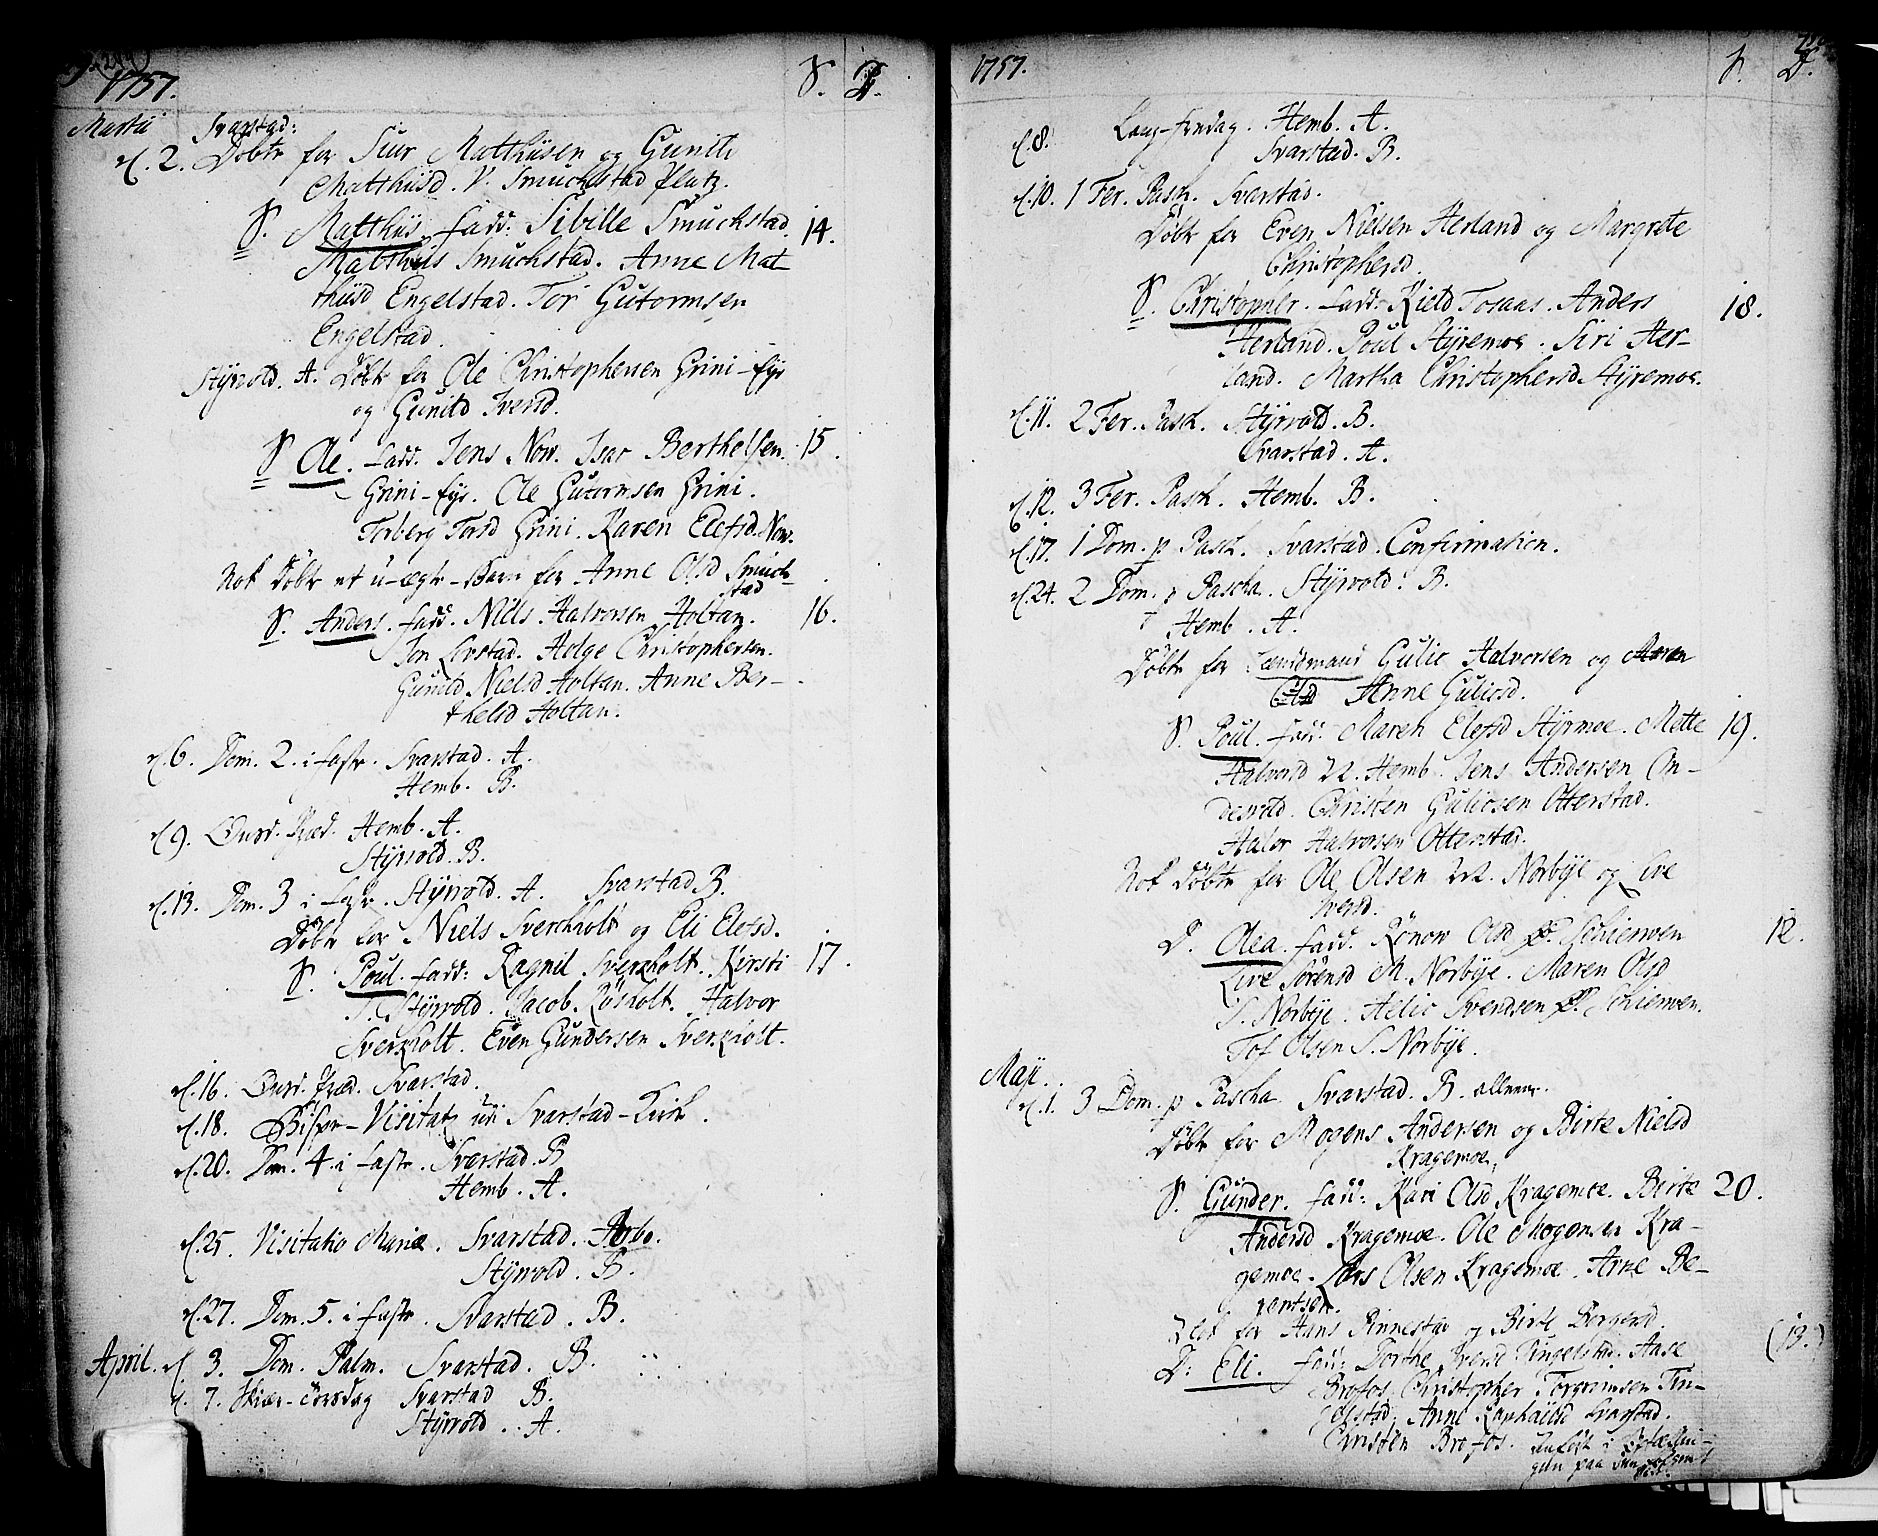 1757.
S. D.
Martii Svarstad:
d. 2. Døbte for Siur Matthiisen og Gunild
Matthiisd. V. Smuchstad Platz.
S. Matthiis. fadd: Sibille Smuchstad 14.
Matthiis Smuchstad. Anne Mat-
thiisd Engelstad. Tor Gutormsen
Engelstad.
Styrvold. A. Døbte for Ole Christophersen Grini-Eye
og Gunild Iversd.
S Ole. fadd. Jens Now. Isac Berthelsen 15.
Grini-Eye. Ole Gutormsen Grini.
Torberg Torsd Grini. Karen Elefsd. Now.
Nok Døbt et u-ægte-Barn for Anne Olsd Smuch-
stad
S. Anders. fadd. Niels Halvorsen Holtan. 16.
Jon Livstad. Helge Christophersen.
Gunild Nielsd Holtan. Anne Ber-
thelsd Holtan.
d. 6. Dom. 2. i faste. Svarstad. A.
Hemb. B.
d. 9. Onsd. Præd. Hemb. A.
Styrvold. B.
d. 13. Dom. 3 i faste. Styrvold. A. Svarstad B.
Døbt for Niels Sverkholt og Eli Elefsd.
S. Poul. fadd: Ragnil Sverkholt. Kirsti 17.
Styrvold. Jacob Røsholt. Halvor
Sverkholt. Even Gundersen Sverkholt.
d. 16. Onsd. Præd. Svarstad.
d. 18. Bispe-Visitatz udi Svarstad-Kirk.
d. 20. Dom. 4. i faste. Svarstad. B
Hemb. A.
d. 25. Visitatio Mariæ. Svarstad.
Styrvold. B.
d. 27. Dom. 5. i faste. Svarstad. B.
April. d. 3. Dom. Palm. Svarstad. B.
d. 7. Skiær-Torsdag Svarstad B.
Styrvold. A.
1757. S. D.
d. 8. Lang-fredag. Hemb. A.
Svarstad. B.
d. 10. 1 Fer. Pasch. Svarstad.
Døbt for Even Nielsen Herland og Margrete
Christophersd.
S. Christopher. fadd: Kield Tosaas. Anders 18.
Herland. Poul Styremoe. Siri Her-
land. Martha Christophersd Styremoe.
d. 11. 2 Fer. Pasch. Styrvold. B.
Svarstad. A.
d. 12. 3 Fer. Pasch. Hemb. B.
d. 17. 1 Dom. p Pasch. Svarstad. Confirmation.
d. 24. 2 Dom. p Pascha. Styrvold. B.
Hemb. A.
Døbt for Lændsmand Gulic Halvorsen og Maren
Olsd Anne Gulicsd.
S. Poul. fadd. Maren Elefsd Styrmoe. Mette 19.
Halvorsd N. Hemb. Jens Andersen On-
desvold. Christen Gulicsen Otterstad.
Halvor Halvorsen Otterstad.
Nok Døbt for Ole Olsen N. Norbye og Live
Iversd.
D. Olea. fadd. Rønow Olsd Schierven 12.
Live Sørensd M. Norbye. Maren Olsd
S. Norbye. Helie Svendsen Schierven.
Tof Olsen S. Norbye.
Maji.
d. 1. 3 Dom. p Pascha. Svarstad. B. allene.
Døbt for Mogens Andersen og Birte Nielsd
Kragemoe.
S. Gunder. fadd: Kari Olsd Kragemoe. Birte 20.
Andersd Kragemoe. Ole Mogensen Kra-
gemoe. Lars Olsen Kragemoe. Arne Be-
rentsen.
Døbt for Hans Rinnestad og Birte Borgersd.
D: Eli. fadd: Dorthe Engelstad. Aase (13.)
Brofos. Christopher Torgrimsen En-
gelstad. Anne Svarstad.
Christen Brofos.